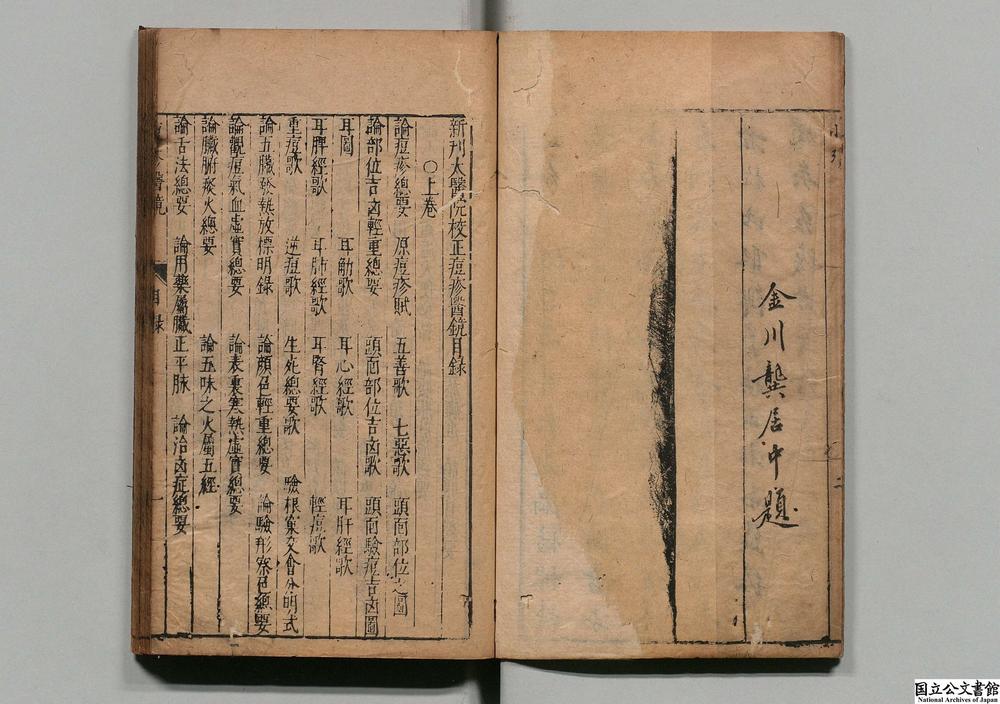 金川龔居中題
新刊太醫院校正痘疹醫鏡目錄
○上卷
論痘疹總要 原痘疹賦 五善歌 七惡歌 頭面部位之圖
論部位吉凶輕重總要 頭面部位吉凶歌 頭面驗痘吉凶圖
耳圖 耳觔歌 耳心經歌 耳肝經歌
耳脾經歌 耳肺經歌 耳腎經歌 輕痘歌
重痘歌 逆痘歌 生死總要歌 驗根窠交會分明式
論五臟發熱放標明錄 論顏色輕重總要 論驗形察色總要
論觀痘氣血虛實總要 論表裏寒熱虛實總要
論臟腑痰火總要 論五味之火屬五經
論舌法總要 論用藥屬臟正平脉 論治凶症總要
醫鏡 目錄 一
国立公文書館
National Archives of Japan